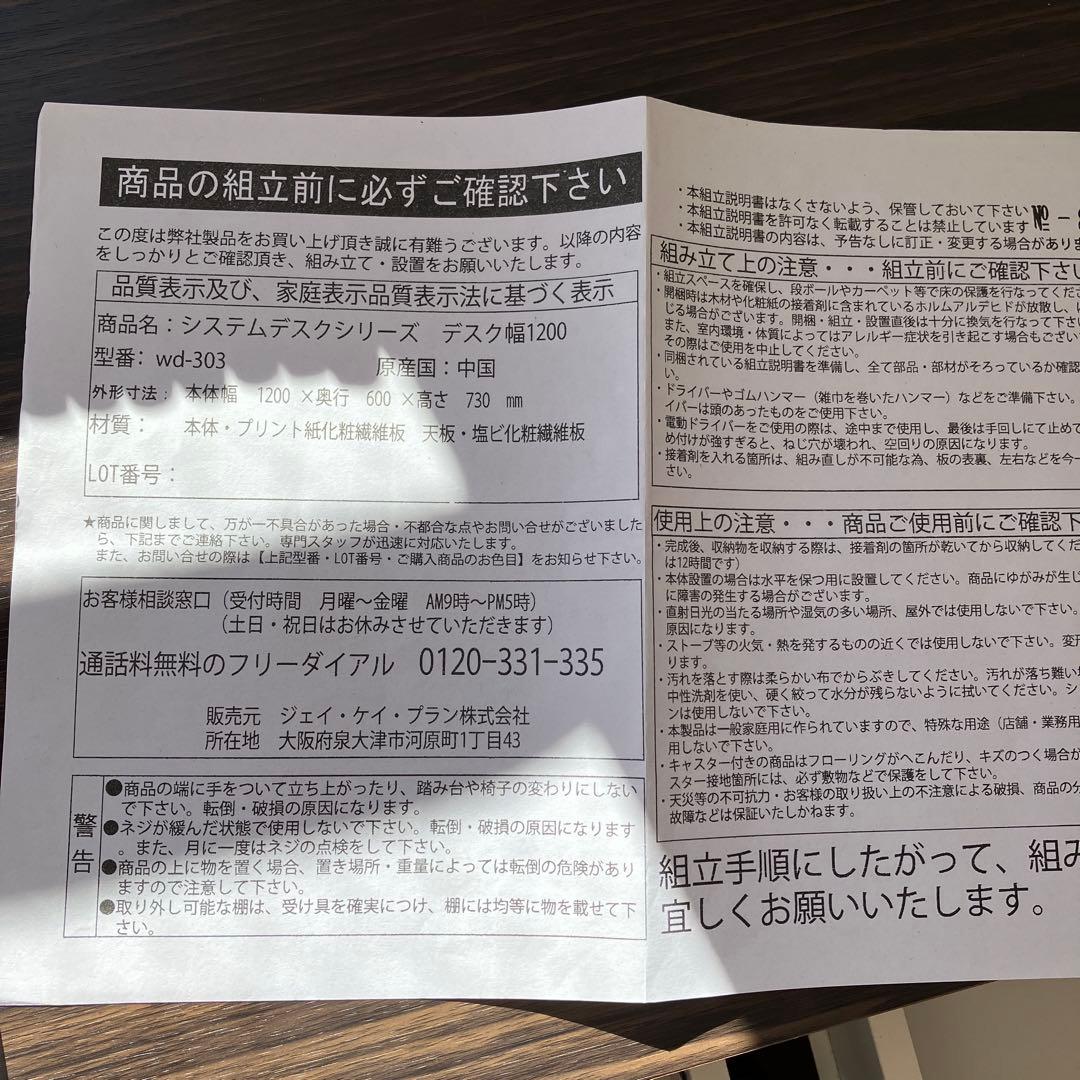 商品の組立前に必ずご確認下さい
この度は弊社製品をお買い上げ頂き誠に有難うございます。以降の内容
をしっかりとご確認頂き、組み立て・設置をお願いいたします。
品質表示及び、家庭表示品質表示法に基づく表示
商品名：システムデスクシリーズ　デスク幅1200
型番：wd-303　原産国：中国
外形寸法：　本体幅　1200　×奥行　600　×高さ　730　mm
材質：　本体・プリント紙化粧繊維板　天板・塩ビ化粧繊維板
LOT番号：
★商品に関しまして、万が一不具合があった場合・不都合な点やお問い合せがございました
ら、下記までご連絡下さい。専門スタッフが迅速に対応いたします。
また、お問い合せの際は【上記型番・LOT番号・ご購入商品のお色目】をお知らせ下さい。
お客様相談窓口（受付時間　月曜～金曜　AM9時～PM5時）
（土日・祝日はお休みさせていただきます）
通話料無料のフリーダイアル　0120-331-335
販売元　ジェイ・ケイ・プラン株式会社
所在地　大阪府泉大津市河原町1丁目43
警告
●商品の端に手をついて立ち上がったり、踏み台や椅子の変わりにしない
で下さい。転倒・破損の原因になります。
●ネジが緩んだ状態で使用しないで下さい。転倒・破損の原因になります
。また、月に一度はネジの点検をして下さい。
●商品の上に物を置く場合、置き場所・重量によっては転倒の危険があり
ますので注意して下さい。
●取り外し可能な棚は、受け具を確実につけ、棚には均等に物を載せて下
さい。
・本組立説明書はなくさないよう、保管しておいて下さい
・本組立説明書を許可なく転載することは禁止しています　№ -
・本組立説明書の内容は、予告なしに訂正・変更する場合があり
組み立て上の注意・・・組立前にご確認下さい
・組立スペースを確保し、段ボールやカーペット等で床の保護を行なってくだ
・開梱時は木材や化粧紙の接着剤に含まれているホルムアルデヒドが放散し、
じる場合がございます。開梱・組立・設置直後は十分に換気を行なって下さ
また、室内環境・体質によってはアレルギー症状を引き起こす場合もござい
その際はご使用を中止してください。
・同梱されている組立説明書を準備し、全て部品・部材がそろっているか確認
い。
・ドライバーやゴムハンマー（雑巾を巻いたハンマー）などをご準備下さい。
イバーは頭のあったものをご使用下さい。
・電動ドライバーをご使用の際は、途中まで使用し、最後は手回しにて止めて
め付けが強すぎると、ねじ穴が壊われ、空回りの原因になります。
・接着剤を入れる箇所は、組み直しが不可能な為、板の表裏、左右などを今一
さい。
使用上の注意・・・商品ご使用前にご確認下
・完成後、収納物を収納する際は、接着剤の箇所が乾いてから収納してくだ
は12時間です）
・本体設置の場合は水平を保つ用に設置してください。商品にゆがみが生じ
に障害の発生する場合がございます。
・直射日光の当たる場所や湿気の多い場所、屋外では使用しないで下さい。
原因になります。
・ストーブ等の火気・熱を発するものの近くでは使用しないで下さい。変形
ります。
・汚れを落とす際は柔らかい布でからぶきしてください。汚れが落ち難い
中性洗剤を使い、硬く絞って水分が残らないように拭いてください。シ
ンは使用しないで下さい。
・本製品は一般家庭用に作られていますので、特殊な用途（店舗・業務用
用しないで下さい。
・キャスター付きの商品はフローリングがへこんだり、キズのつく場合が
スター接地箇所には、必ず敷物などで保護をして下さい。
・天災等の不可抗力・お客様の取り扱い上の不注意による破損、商品の分
故障などは保証いたしかねます。
組立手順にしたがって、組み
宜しくお願いいたします。